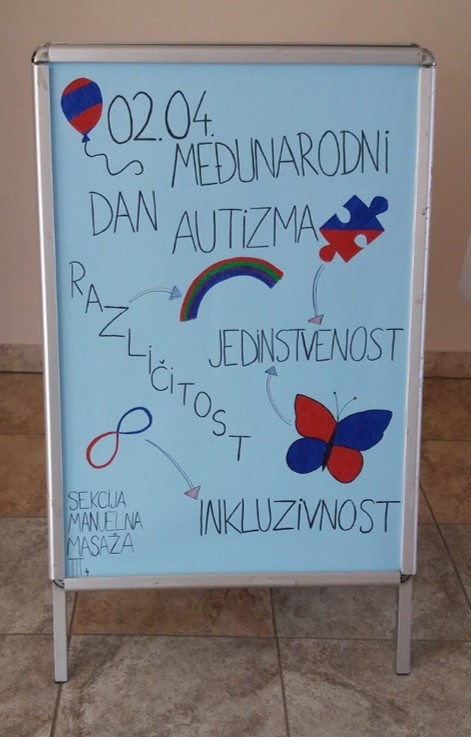 02.04.
MEĐUNARODNI
DAN AUTIZMA
RAZLIČITOST
JEDINSTVENOST
INKLUZIVNOST
SEKCIJA
MANUELNA
MASAŽA
III4